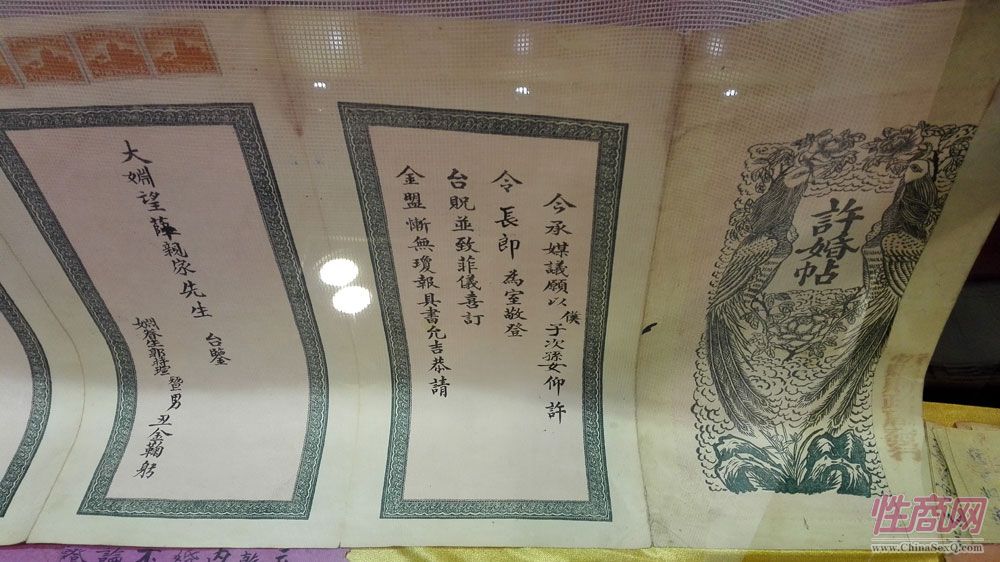 許婚帖
今承媒議願以僕子次孫女仰許
令長郎為室敬登
台貺並致菲儀喜訂
金盟慚無瓊報具書允吉恭請
大姻望薛親家先生 台鑒
暨男丑金鞠躬
性商网
www.ChinaSexQ.com